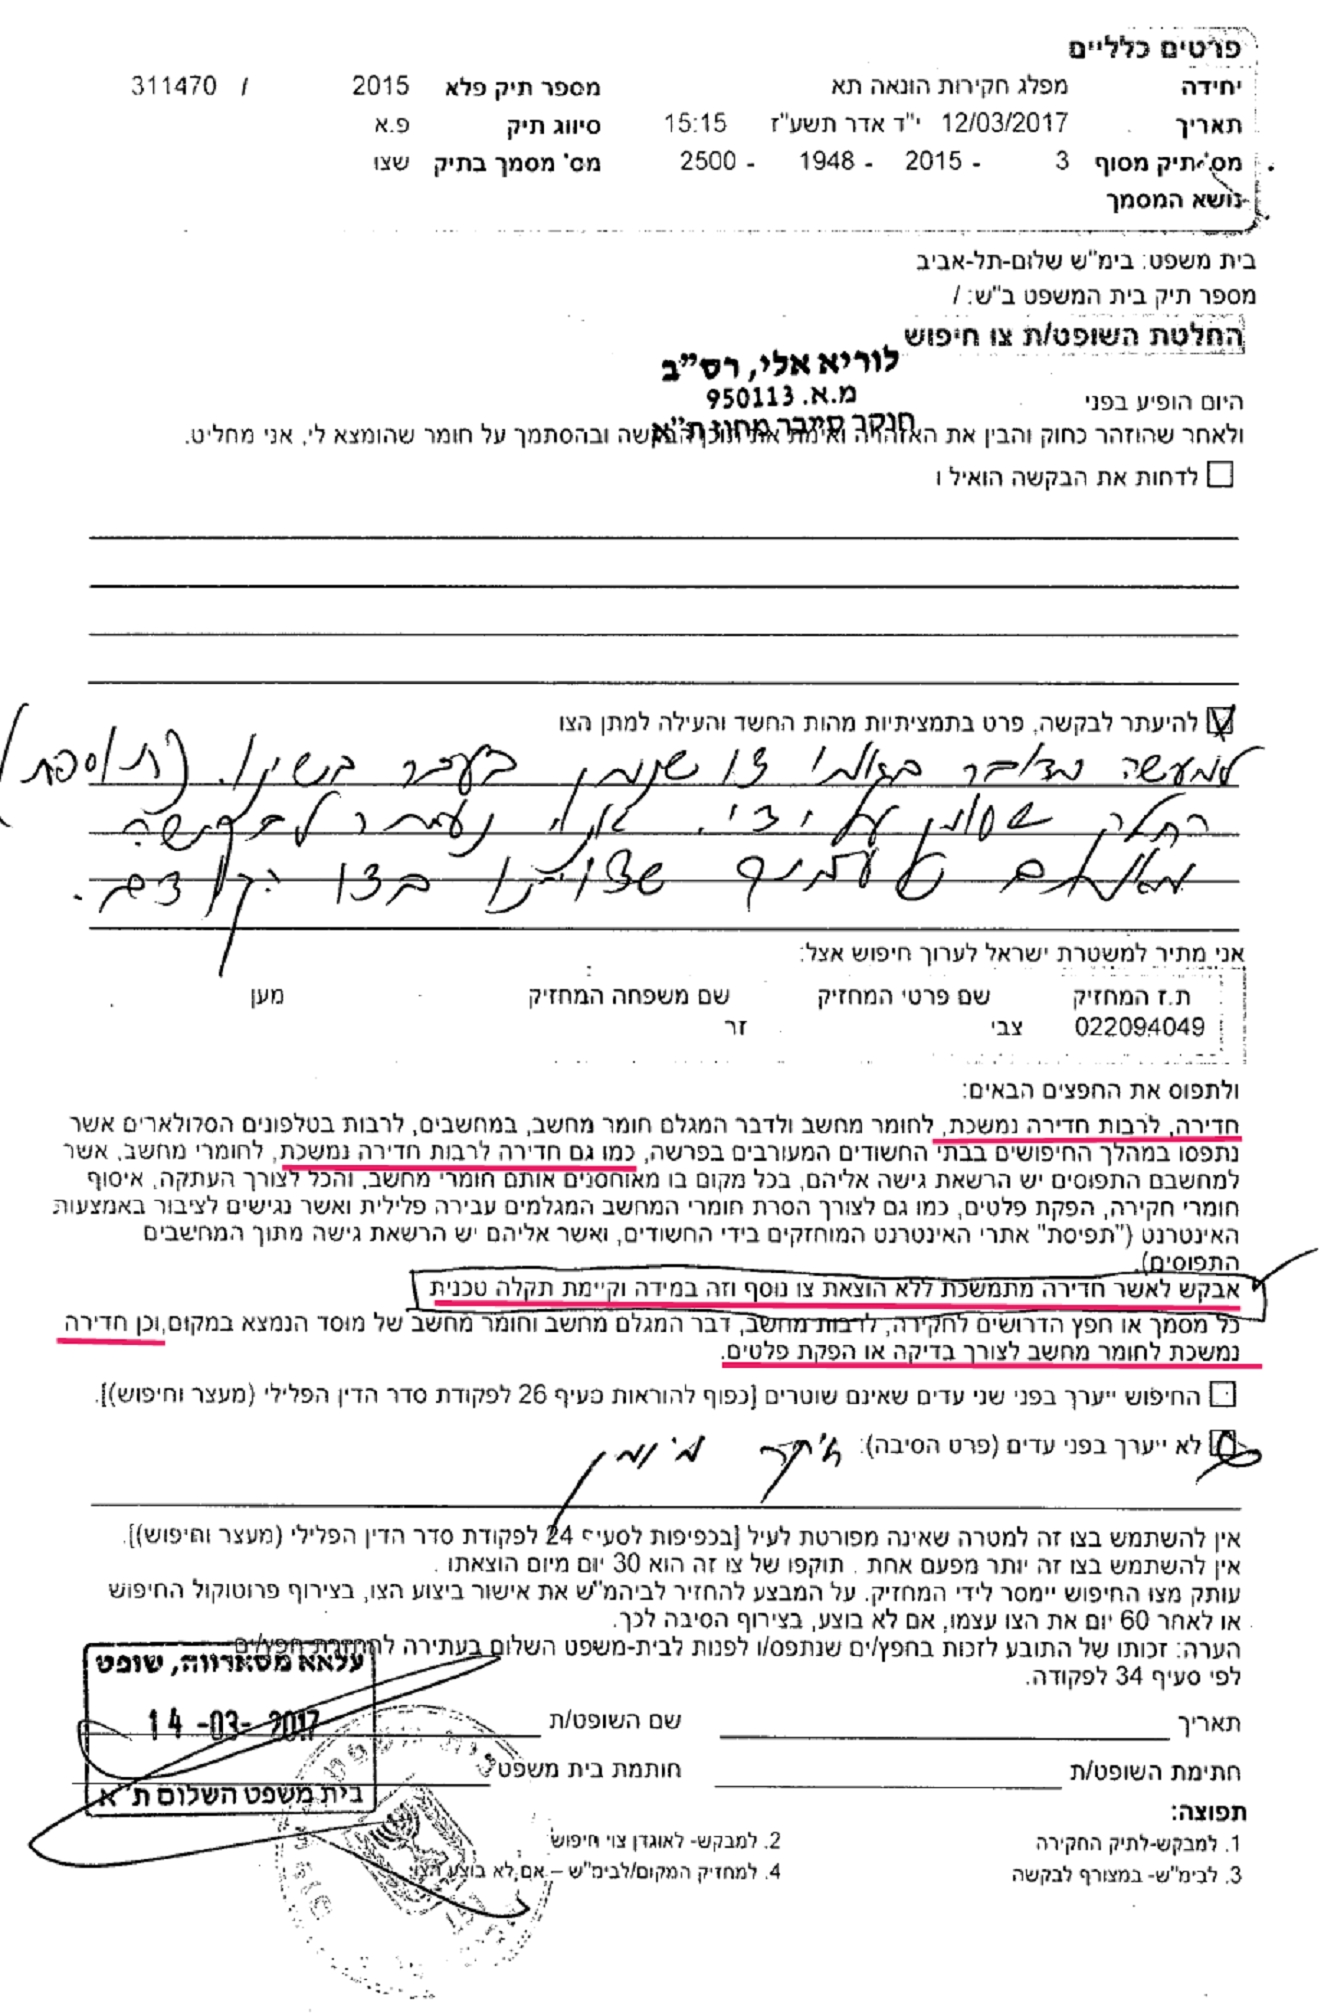 פרטים כלליים
יחידה מפלג חקירות הונאה תא מספר תיק פלא 2015 / 311470
תאריך 12/03/2017 י"ד אדר תשע"ז 15:15 סיווג תיק פ.א
מס' תיק מסוף 3 - 2015 - 1948 - 2500 מס' מסמך בתיק שצו
נושא המסמך
בית משפט: בימ"ש שלום-תל-אביב
מספר תיק בית המשפט ב"ש: /
החלטת השופט/ת צו חיפוש
לוריא אלי, רס"ב
מ.א. 950113
היום הופיע בפני
חוקר סייבר מחוז ת"א
ולאחר שהוזהר כחוק והבין את האזהרה ואימת את תוכן הבקשה ובהסתמך על חומר שהומצא לי, אני מחליט.
לדחות את הבקשה הואיל ו
להיעתר לבקשה, פרט בתמציתיות מהות החשד והעילה למתן הצו
למעשה מדובר באותו צו שניתן בעבר בשינוי. (תוספת)
החלק שסומן על ידי. אני נעתר לבקשה
שצוינו בצו הקודם.
אני מתיר למשטרת ישראל לערוך חיפוש אצל:
ת.ז המחזיק שם פרטי המחזיק שם משפחה המחזיק מען
022094049 צבי זר
ולתפוס את החפצים הבאים:
חדירה, לרבות חדירה נמשכת, לחומר מחשב ולדבר המגלם חומר מחשב, במחשבים, לרבות בטלפונים הסלולארים אשר
נתפסו במהלך החיפושים בבתי החשודים המעורבים בפרשה, כמו גם חדירה לרבות חדירה נמשכת, לחומרי מחשב, אשר
למחשבם התפוסים יש הרשאת גישה אליהם, בכל מקום בו מאוחסנים אותם חומרי מחשב, והכל לצורך העתקה, איסוף
חומרי חקירה, הפקת פלטים, כמו גם לצורך הסרת חומרי המחשב המגלמים עבירה פלילית ואשר נגישים לציבור באמצעות
האינטרנט ("תפיסת" אתרי האינטרנט המוחזקים בידי החשודים, ואשר אליהם יש הרשאת גישה מתוך המחשבים
התפוסים).
אבקש לאשר חדירה מתמשכת ללא הוצאת צו נוסף וזה במידה וקיימת תקלה טכנית
כל מסמך או חפץ הדרושים לחקירה, לרבות מחשב, דבר המגלם מחשב וחומר מחשב של מוסד הנמצא במקום, וכן חדירה
נמשכת לחומר מחשב לצורך בדיקה או הפקת פלטים.
החיפוש ייערך בפני שני עדים שאינם שוטרים [כפוף להוראות סעיף 26 לפקודת סדר הדין הפלילי (מעצר וחיפוש)].
לא ייערך בפני עדים (פרט הסיבה): חיקור מיומן
אין להשתמש בצו זה למטרה שאינה מפורטת לעיל [בכפיפות לסעיף 24 לפקודת סדר הדין הפלילי (מעצר וחיפוש)].
אין להשתמש בצו זה יותר מפעם אחת . תוקפו של צו זה הוא 30 יום מיום הוצאתו .
עותק מצו החיפוש יימסר לידי המחזיק. על המבצע להחזיר לביהמ"ש את אישור ביצוע הצו, בצירוף פרוטוקול החיפוש
או לאחר 60 יום את הצו עצמו, אם לא בוצע, בצירוף הסיבה לכך.
הערה: זכותו של התובע לזכות בחפץ/ים שנתפס/ו לפנות לבית-משפט השלום בעתירה להחזרת חפץ/ים
לפי סעיף 34 לפקודה.
עלאא מסארווה, שופט
תאריך שם השופט/ת 14-03-2017
חתימת השופט/ת חותמת בית משפט
בית משפט השלום ת"א
תפוצה:
1. למבקש-לתיק החקירה 2. למבקש- לאוגדן צוי חיפוש
3. לבימ"ש- במצורף לבקשה 4. למחזיק המקום/לבימ"ש – אם לא בוצע הצו